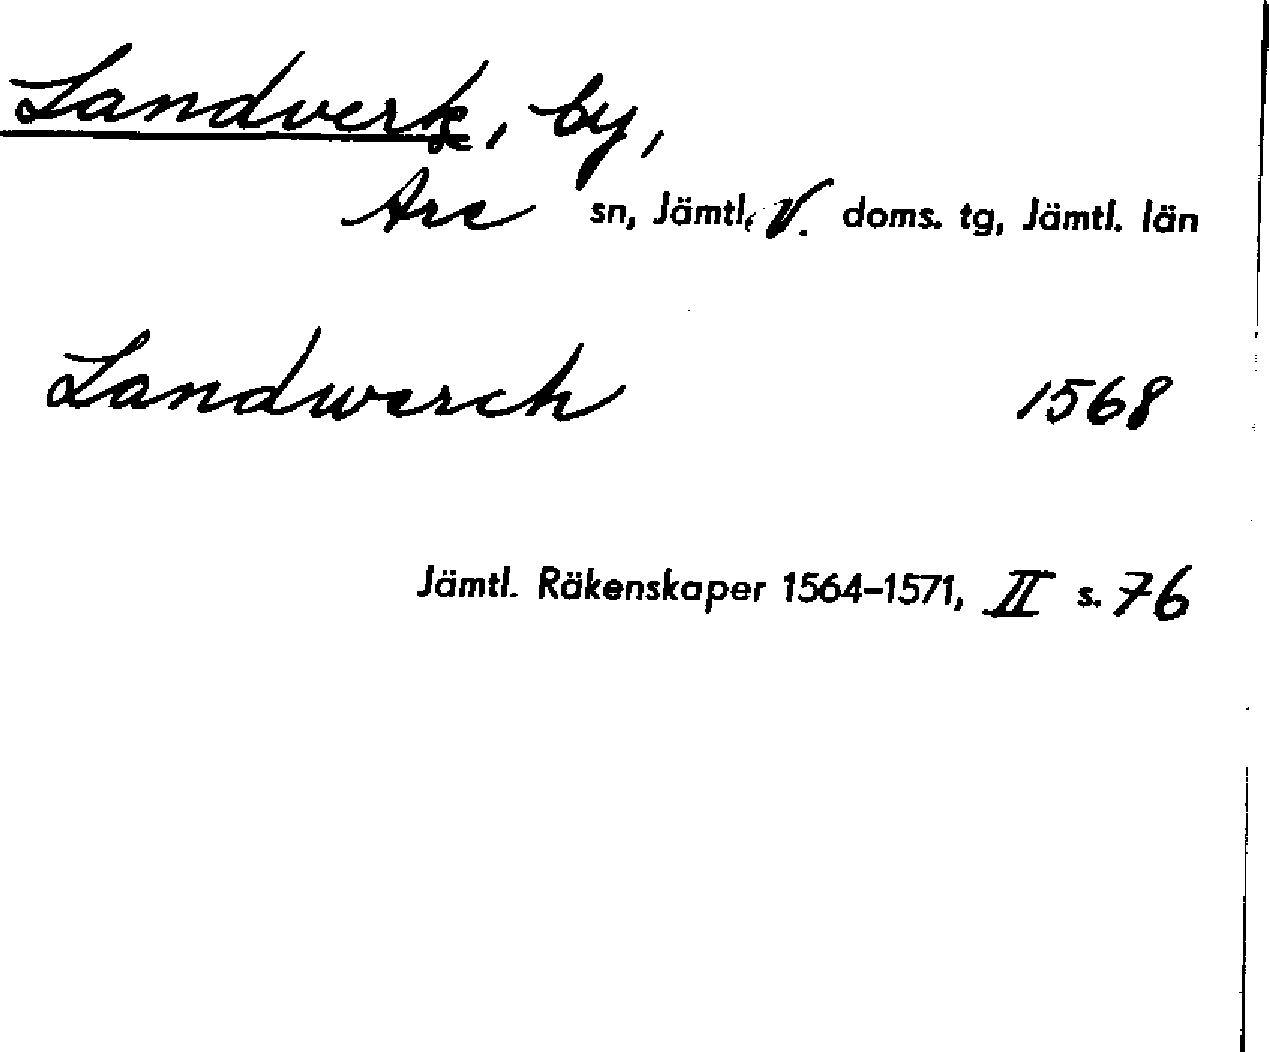 Landverk, by,
Are sn, Jämtl. V. doms. tg, Jämtl. län
Landwerch 1568
Jämtl. Räkenskaper 1564–1571, II s. 76